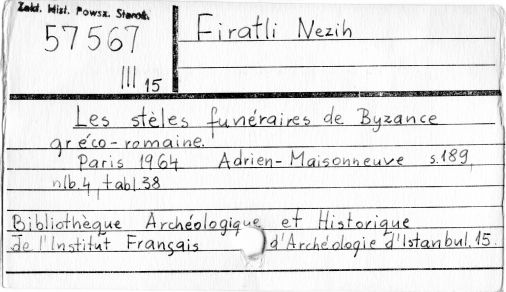 Zakł. Hist. Powsz. Staroż.
57567
III 15
Firatli Nezih
Les stèles funéraires de Byzance
gréco-romaine.
Paris 1964 Adrien-Maisonneuve s.189,
nlb.4, tabl.38
Bibliothèque Archéologique et Historique
de l'Institut Français d'Archéologie d'Istanbul.15.